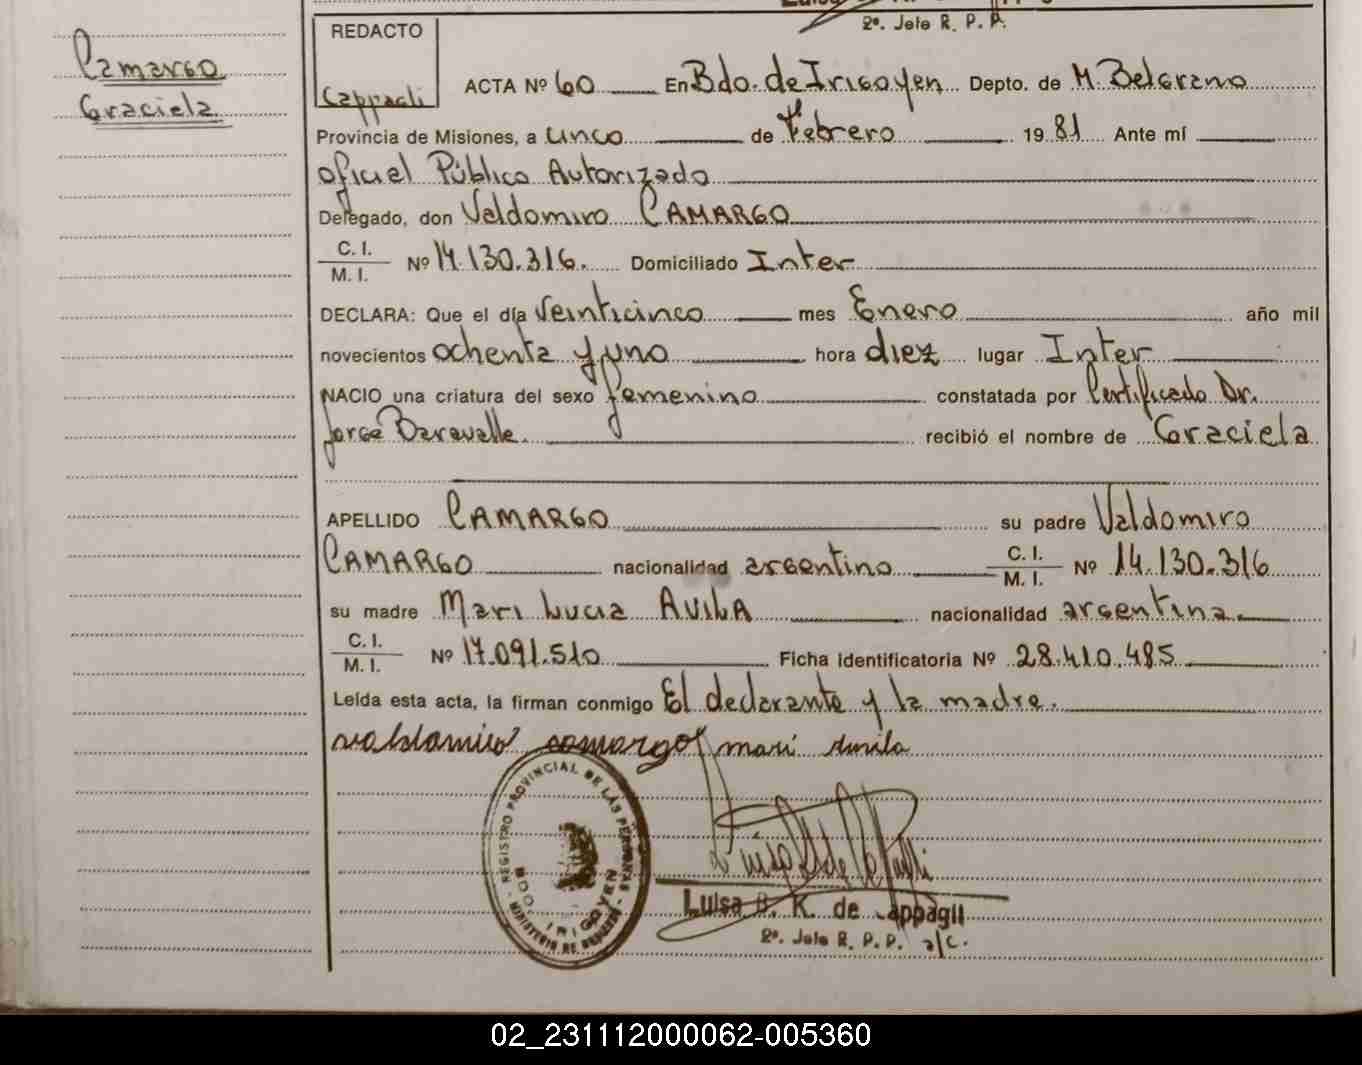 2º. Jefe R. P. P.
Camargo
Graciela
REDACTO
Cappagli
ACTA Nº 60 En Bdo. de Irigoyen Depto. de M. Belgrano
Provincia de Misiones, a cinco de Febrero 19 81 Ante mí
oficial Público Autorizado
Delegado, don Valdomiro CAMARGO
C. I.
M. I. Nº 14.130.316. Domiciliado Inter
DECLARA: Que el día Veinticinco mes Enero año mil
novecientos ochenta y uno hora diez lugar Inter
NACIO una criatura del sexo femenino constatada por Certificado Dr.
Jorge Baravalle. recibió el nombre de Graciela
APELLIDO CAMARGO su padre Valdomiro
CAMARGO nacionalidad argentino C. I. M. I. Nº 14.130.316
su madre Mari Lucia AVILA nacionalidad argentina.
C. I.
M. I. Nº 17.091.510 Ficha identificatoria Nº 28.410.485
Leída esta acta, la firman conmigo El declarante y la madre.
valdamiro camargo mari avila
REGISTRO PROVINCIAL DE LAS PERSONAS
BDO. IRIGOYEN
MINISTERIO DE
Luisa B. K. de Cappagli
2º. Jefe R. P. P. a/c.
02_231112000062-005360